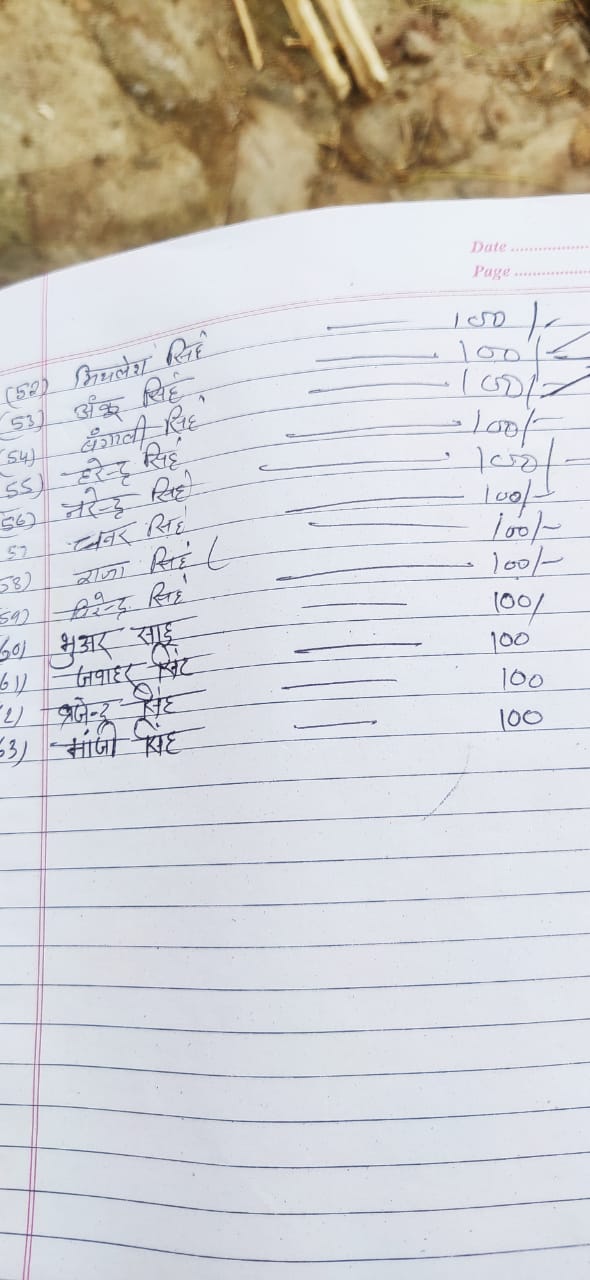 Date ...............
Page ...............
(52) मिथलेश सिंह 100/-
(53) अंकू सिंह 100/-
(54) बंगाली सिंह 100/-
55) हरेन्द्र सिंह 100/-
56) नरेन्द्र सिंह 100/-
57 सिंह 100/-
58) राजा सिंह 100/-
59) विरेन्द्र सिंह 100/-
60) भुअर साह 100/
61) जवाहर सिंह 100
2) ब्रजेन्द्र सिंह 100
63) मांजी सिंह 100